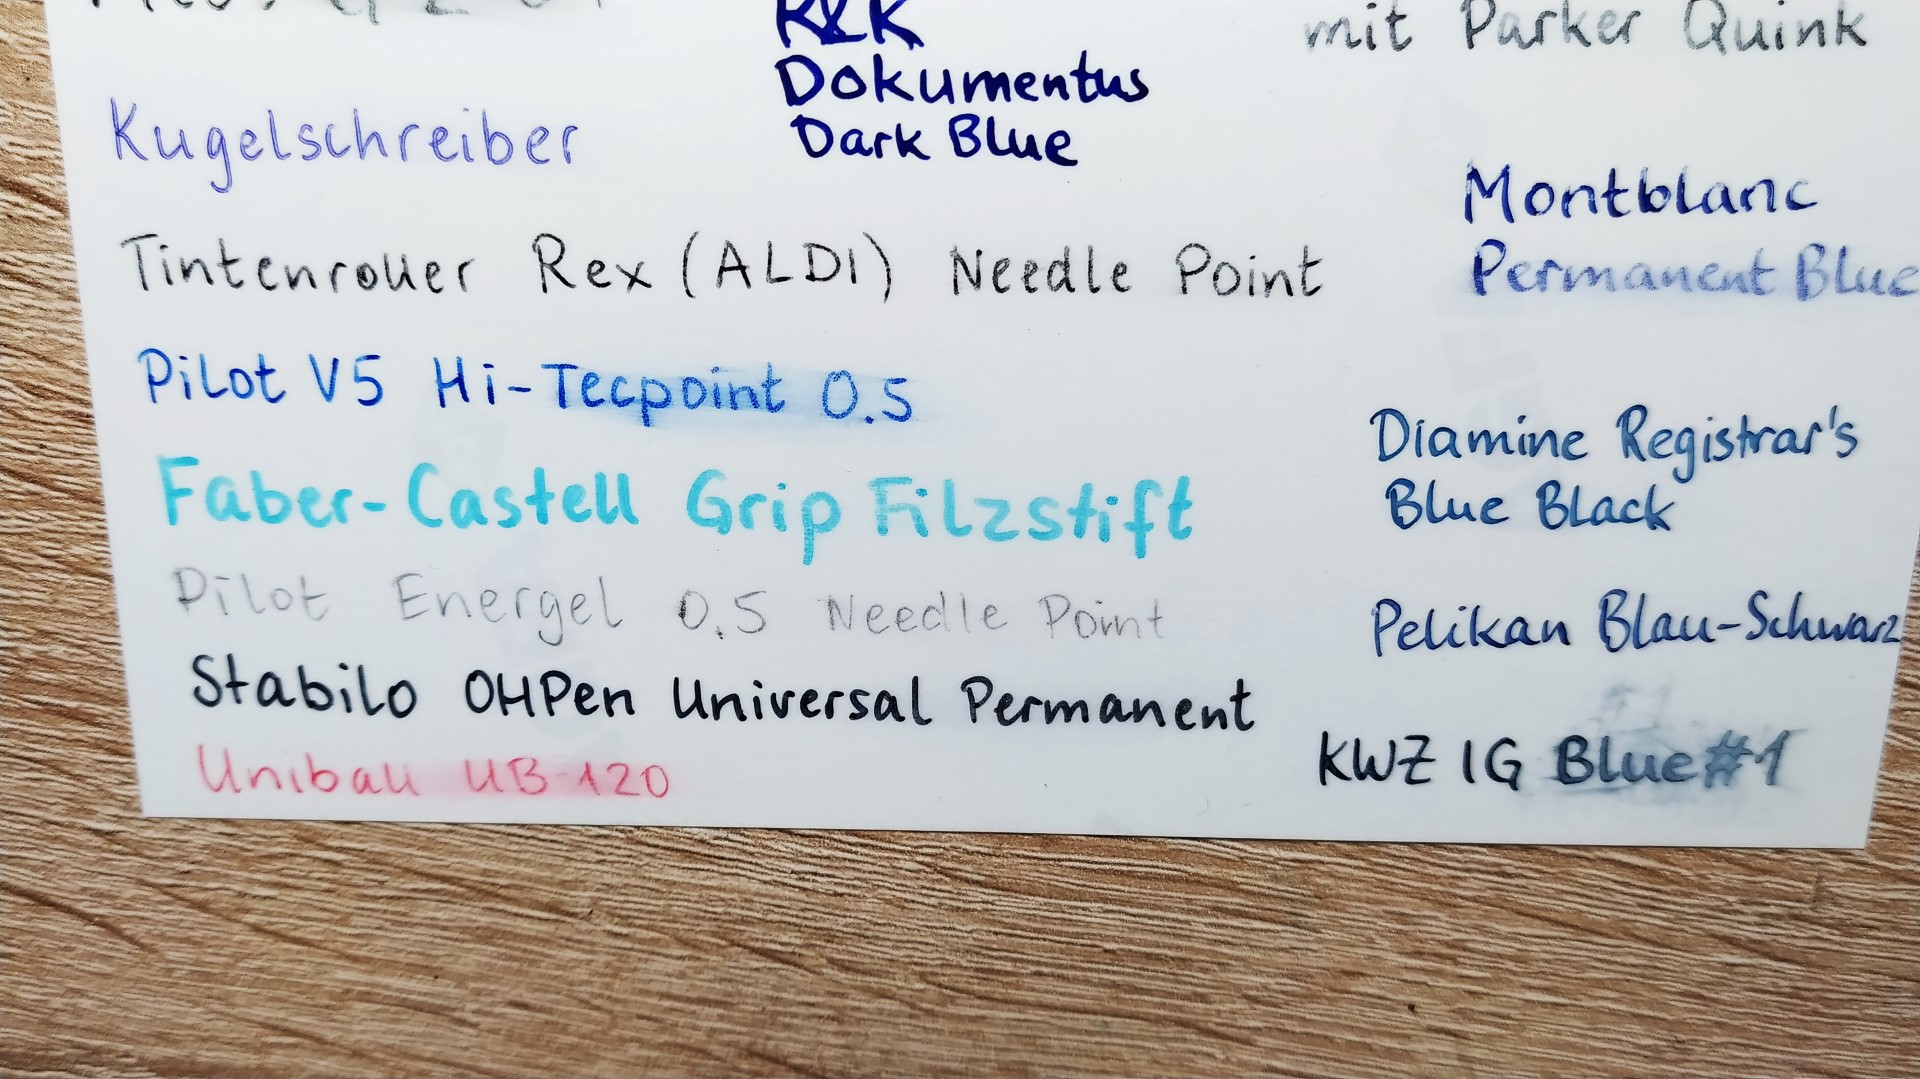 Kugelschreiber
Tintenroller Rex (ALDI) Needle Point
Pilot V5 Hi-Tecpoint 0.5
Faber-Castell Grip Filzstift
Pilot Energel 0.5 Needle Point
Stabilo OHPen Universal Permanent
Uniball UB-120
R&K
Dokumentus
Dark Blue
mit Parker Quink
Montblanc
Permanent Blue
Diamine Registrar's
Blue Black
Pelikan Blau-Schwarz
KWZ IG Blue #1